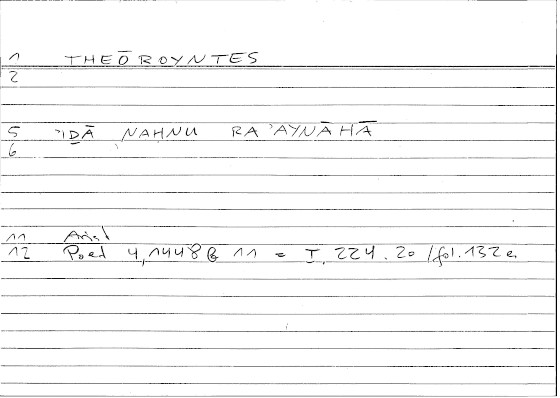 1 THEŌROYNTES
2
5 ʾIḎĀ NAḤNU RAʾAYNĀHĀ
6
11 Arist
12 Poet 4,1448b 11 = I. 224.20/fol.132a